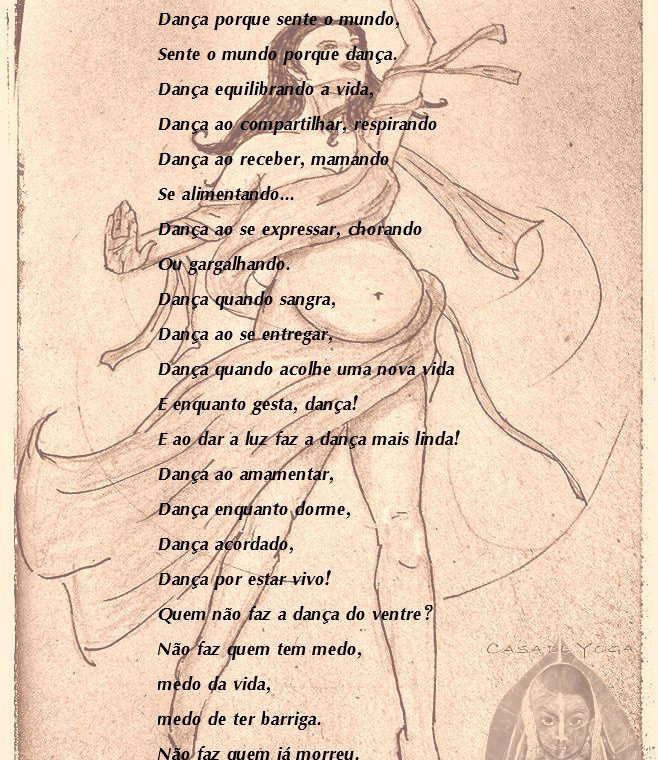 Dança porque sente o mundo,
Sente o mundo porque dança.
Dança equilibrando a vida,
Dança ao compartilhar, respirando
Dança ao receber, mamando
Se alimentando...
Dança ao se expressar, chorando
Ou gargalhando.
Dança quando sangra,
Dança ao se entregar,
Dança quando acolhe uma nova vida
E enquanto gesta, dança!
E ao dar a luz faz a dança mais linda!
Dança ao amamentar,
Dança enquanto dorme,
Dança acordado,
Dança por estar vivo!
Quem não faz a dança do ventre?
Não faz quem tem medo,
CASA DE YOGA
medo da vida,
medo de ter barriga.
Não faz quem já morreu.